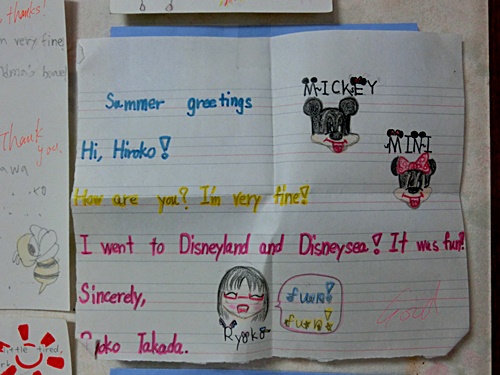 thanks!
very fine
Thank
you,
Summer greetings
MICKEY
MINI
Hi, Hiroko!
How are you? I'm very fine!
I went to Disneyland and Disneysea! It was fun!
Sincerely,
fun!
fun!
Ryoko
Ryoko Takada.
little tired,